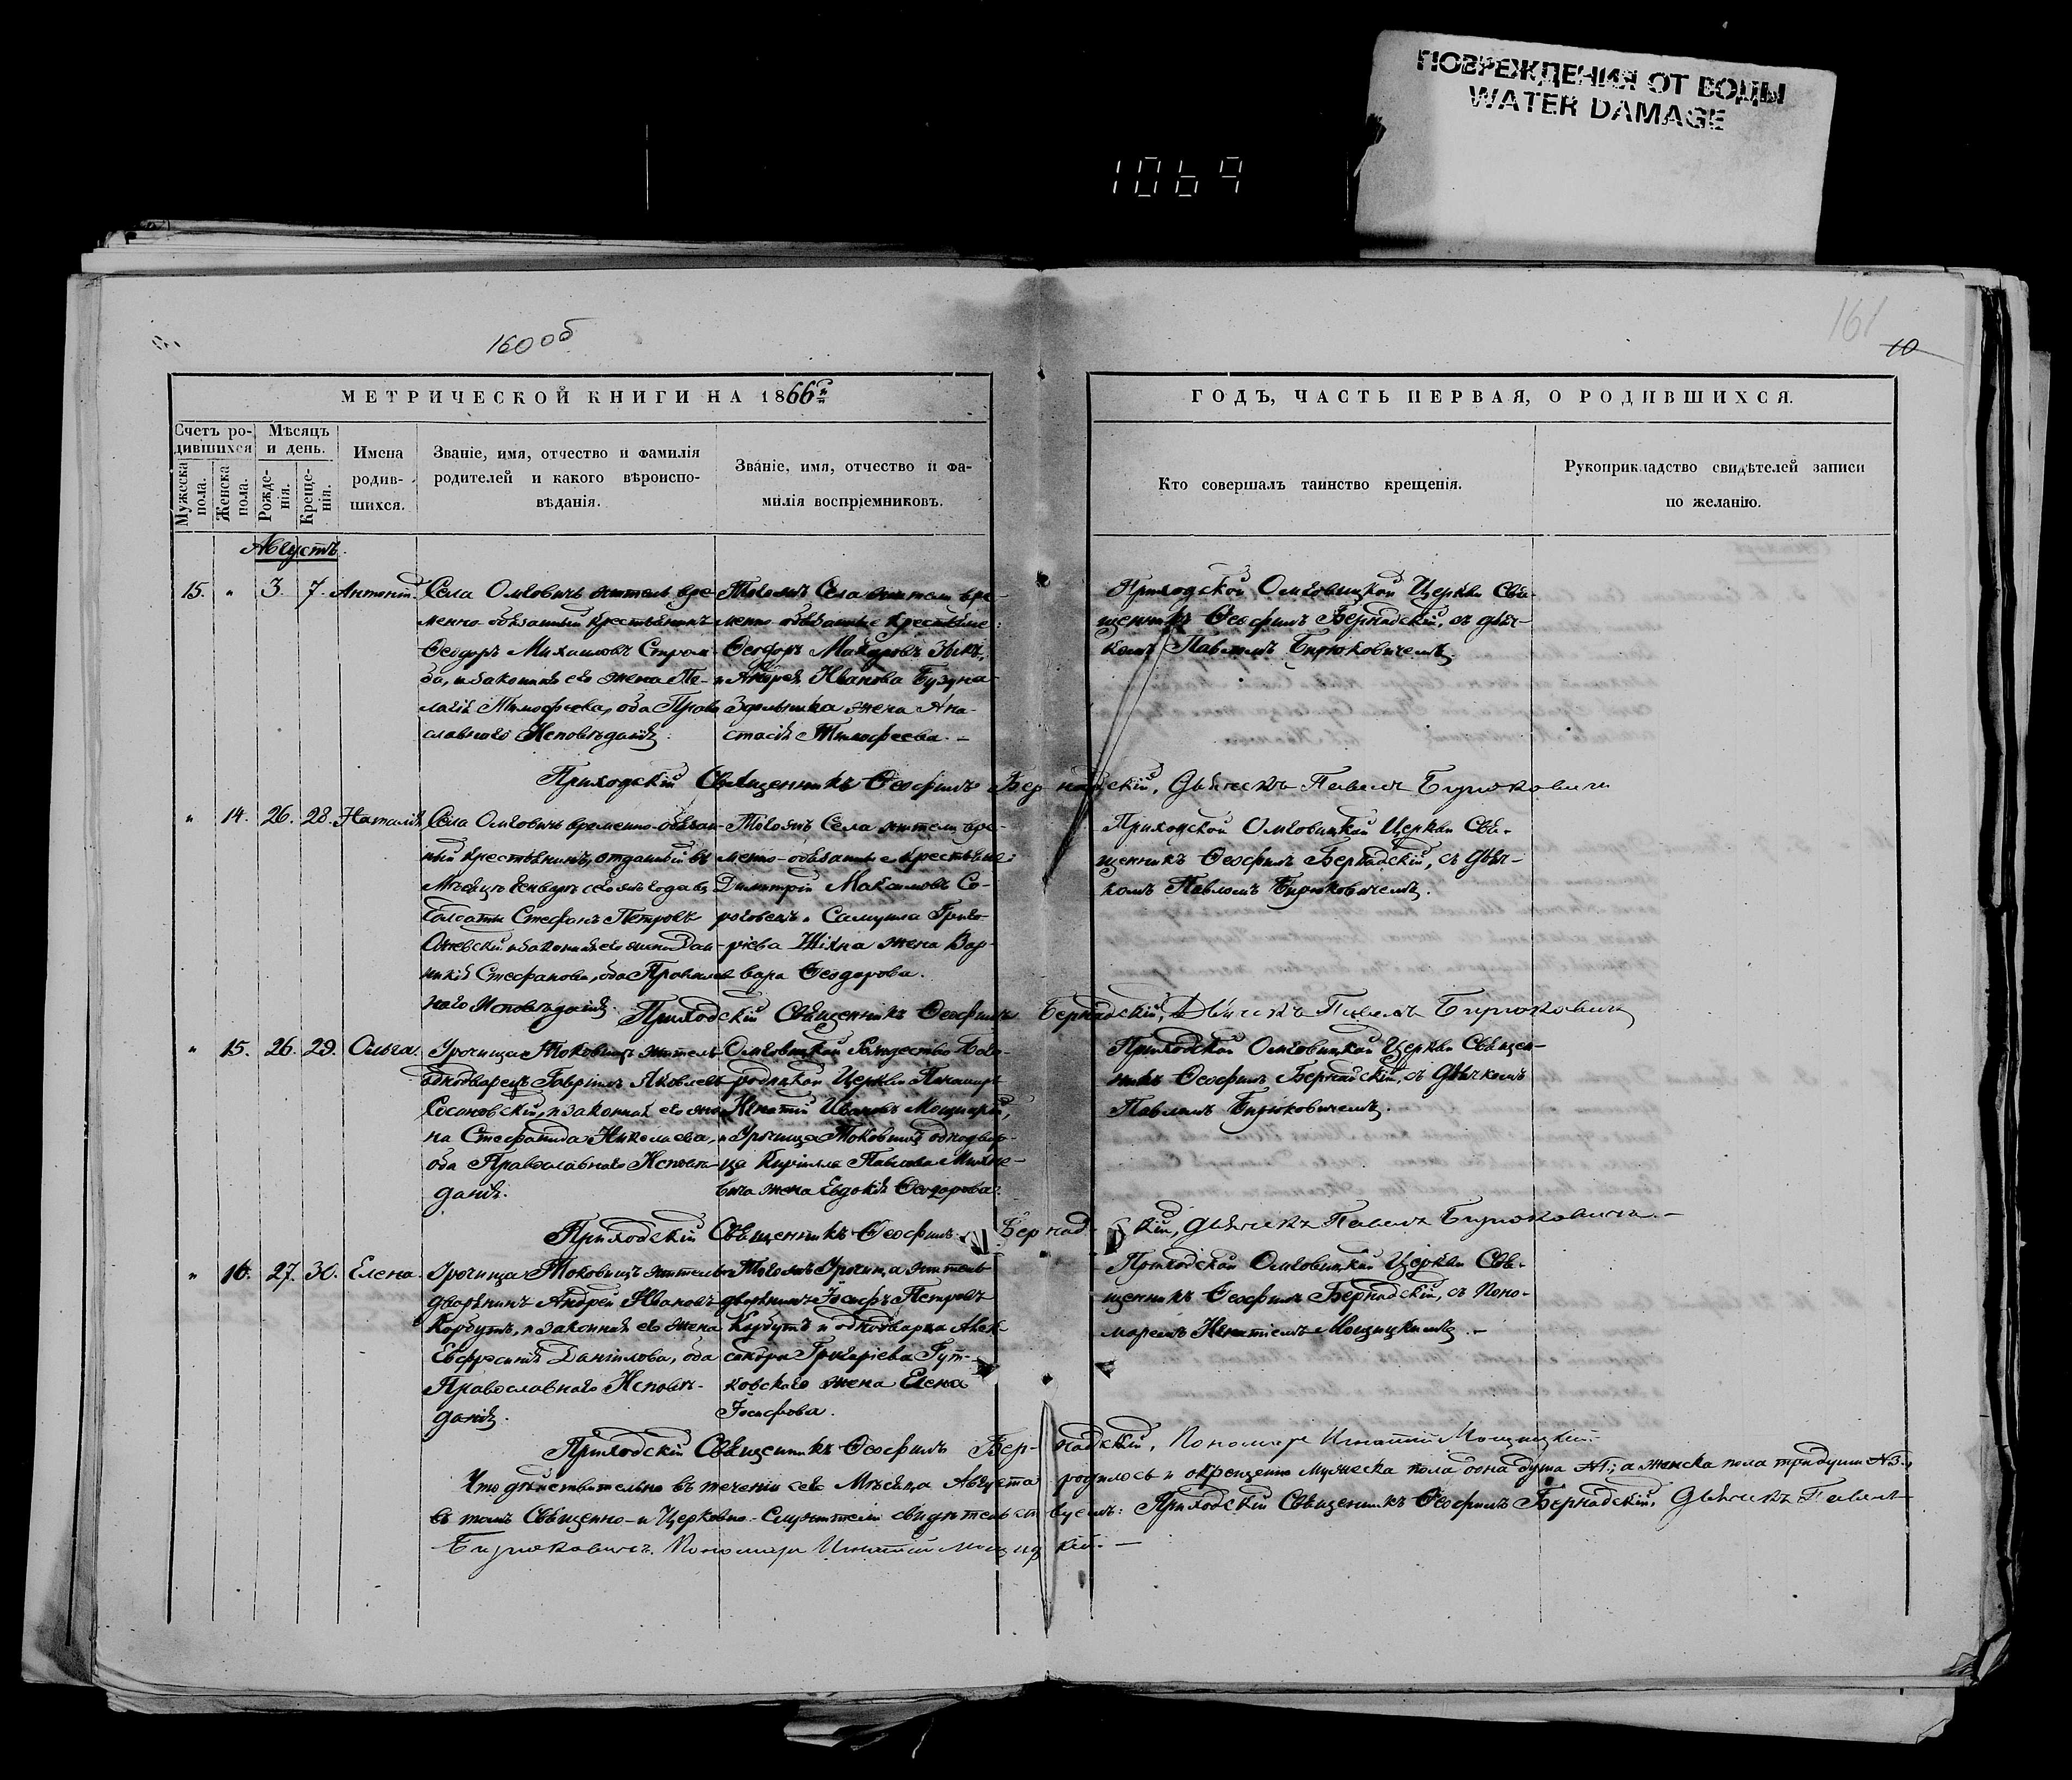 ПОВРЕЖДЕНИЯ ОТ ВОДЫ
WATER DAMAGE
1069
160об
161
10
МЕТРИЧЕСКОЙ КНИГИ НА 1866й
ГОДЪ, ЧАСТЬ ПЕРВАЯ, О РОДИВШИХСЯ.
Счетъ ро-
дившихся
Мужеска пола.
Женска пола.
Мѣсяцъ
и день.
Рожде-
нія.
Креще-
нія.
Имена
родив-
шихся.
Званіе, имя, отчество и фамилія
родителей и какого вѣроиспо-
вѣданія.
Званіе, имя, отчество и фа-
милія воспріемниковъ.
Кто совершалъ таинство крещенія.
Рукоприкладство свидѣтелей записи
по желанію.
Августъ.
15. " 3. 7. Антоній.
Села Омговичъ житель вре-
менно-обязанный крестьянинъ
Ѳеодоръ Михаиловъ
и законная его жена Пе-
лагія Тимофеева, оба Право
славнаго Исповѣданія.
Тогожъ Села жители вре-
менно-обязанные крестьяне:
Ѳеодоръ Макаровъ Зыкъ,
и Андрея Иванова
жена Ана-
стасія Тимофеева. –
Приходской Омговицкой Церкви Свя-
щенникъ Ѳеофилъ Бернадскій, съ дьяч-
комъ Павломъ Бирюковичемъ.
Приходскій Священникъ Ѳеофилъ Бернадскій, Дьячекъ Павелъ Бирюковичъ
" 14. 26. 28. Наталія
Села Омговичъ временно-обязан-
ный крестьянинъ, отданный въ
Мѣсяцѣ Генварѣ сегожъ года въ
Солдаты Стефанъ Петровъ
и законная его жена Дом-
никія Стефанова, оба Православ
наго Исповѣданія.
Тогожъ Села жители вре-
менно-обязанные крестьяне:
Димитрій Максимовъ Со-
роговецъ и Самуила Григо-
ріева жена Вар-
вара Ѳеодорова.
Приходской Омговицкой Церкви Свя-
щенникъ Ѳеофилъ Бернадскій, съ дьяч-
комъ Павломъ Бирюковичемъ.
Приходскій Священникъ Ѳеофилъ Бернадскій, Дьячекъ Павелъ Бирюковичъ
" 15. 26. 29. Ольга.
Урочища Токовищъ житель
однодворецъ Гавріилъ Яковлевъ
Сосновскій, и законная его же-
на Стефанида Николаева,
оба Православнаго Исповѣ-
данія.
Омговицкой Рождество-Бого-
родицкой Церкви Пономарь
Игнатій Ивановъ Мощицкій,
и Урочища Токовищъ однодвор-
ца Кирилла Павлова Михне-
вича жена Евдокія Ѳеодорова.
Приходской Омговицкой Церкви Священ-
никъ Ѳеофилъ Бернадскій, съ Дьячкомъ
Павломъ Бирюковичемъ.
Приходскій Священникъ Ѳеофилъ Бернадскій, Дьячекъ Павелъ Бирюковичъ. –
" 16. 27. 30. Елена
Урочища Токовищъ житель
дворянинъ Андрей Ивановъ
Корбутъ, и законная его жена
Евфросинія Даніилова, оба
Православнаго Исповѣ-
данія.
Тогожъ Урочища житель
дворянинъ Іосифъ Петровъ
Корбутъ и однодворца Алек-
сандра Григоріева Гут-
ковскаго жена Елена
Іосифова.
Приходской Омговицкой Церкви Свя-
щенникъ Ѳеофилъ Бернадскій, съ Поно-
маремъ Игнатіемъ Мощицкимъ. –
Приходскій Священникъ Ѳеофилъ Бернадскій, Пономарь Игнатій Мощицкій.
Что дѣйствительно въ теченіи сего Мѣсяца Августа родилось и окрещено мужеска пола одна душа №1; а женска пола три души №3.,
въ томъ Священно- и Церковно-Служители свидѣтельствуемъ: Приходскій Священникъ Ѳеофилъ Бернадскій, Дьячекъ Павелъ
Бирюковичъ. Пономарь Игнатій Мощицкій. –